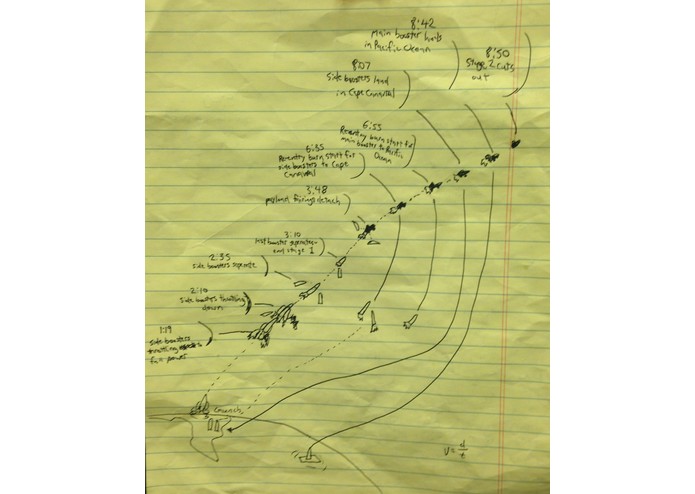 8:42
Main booster lands
in Pacific Ocean
8:50
Stage 2 cuts
out
8:07
side boosters land
in Cape Canaveral
6:53
Reentry burn start for
main booster to Pacific
Ocean
6:35
Reentry burn start for
side boosters to Cape
Canaveral
3:48
payload fairings detach
3:10
booster seperates
end stage 1
2:35
side boosters seperate
2:10
side boosters throttling
down
1:19
side boosters
throttling
full power
Launch
v = d/t